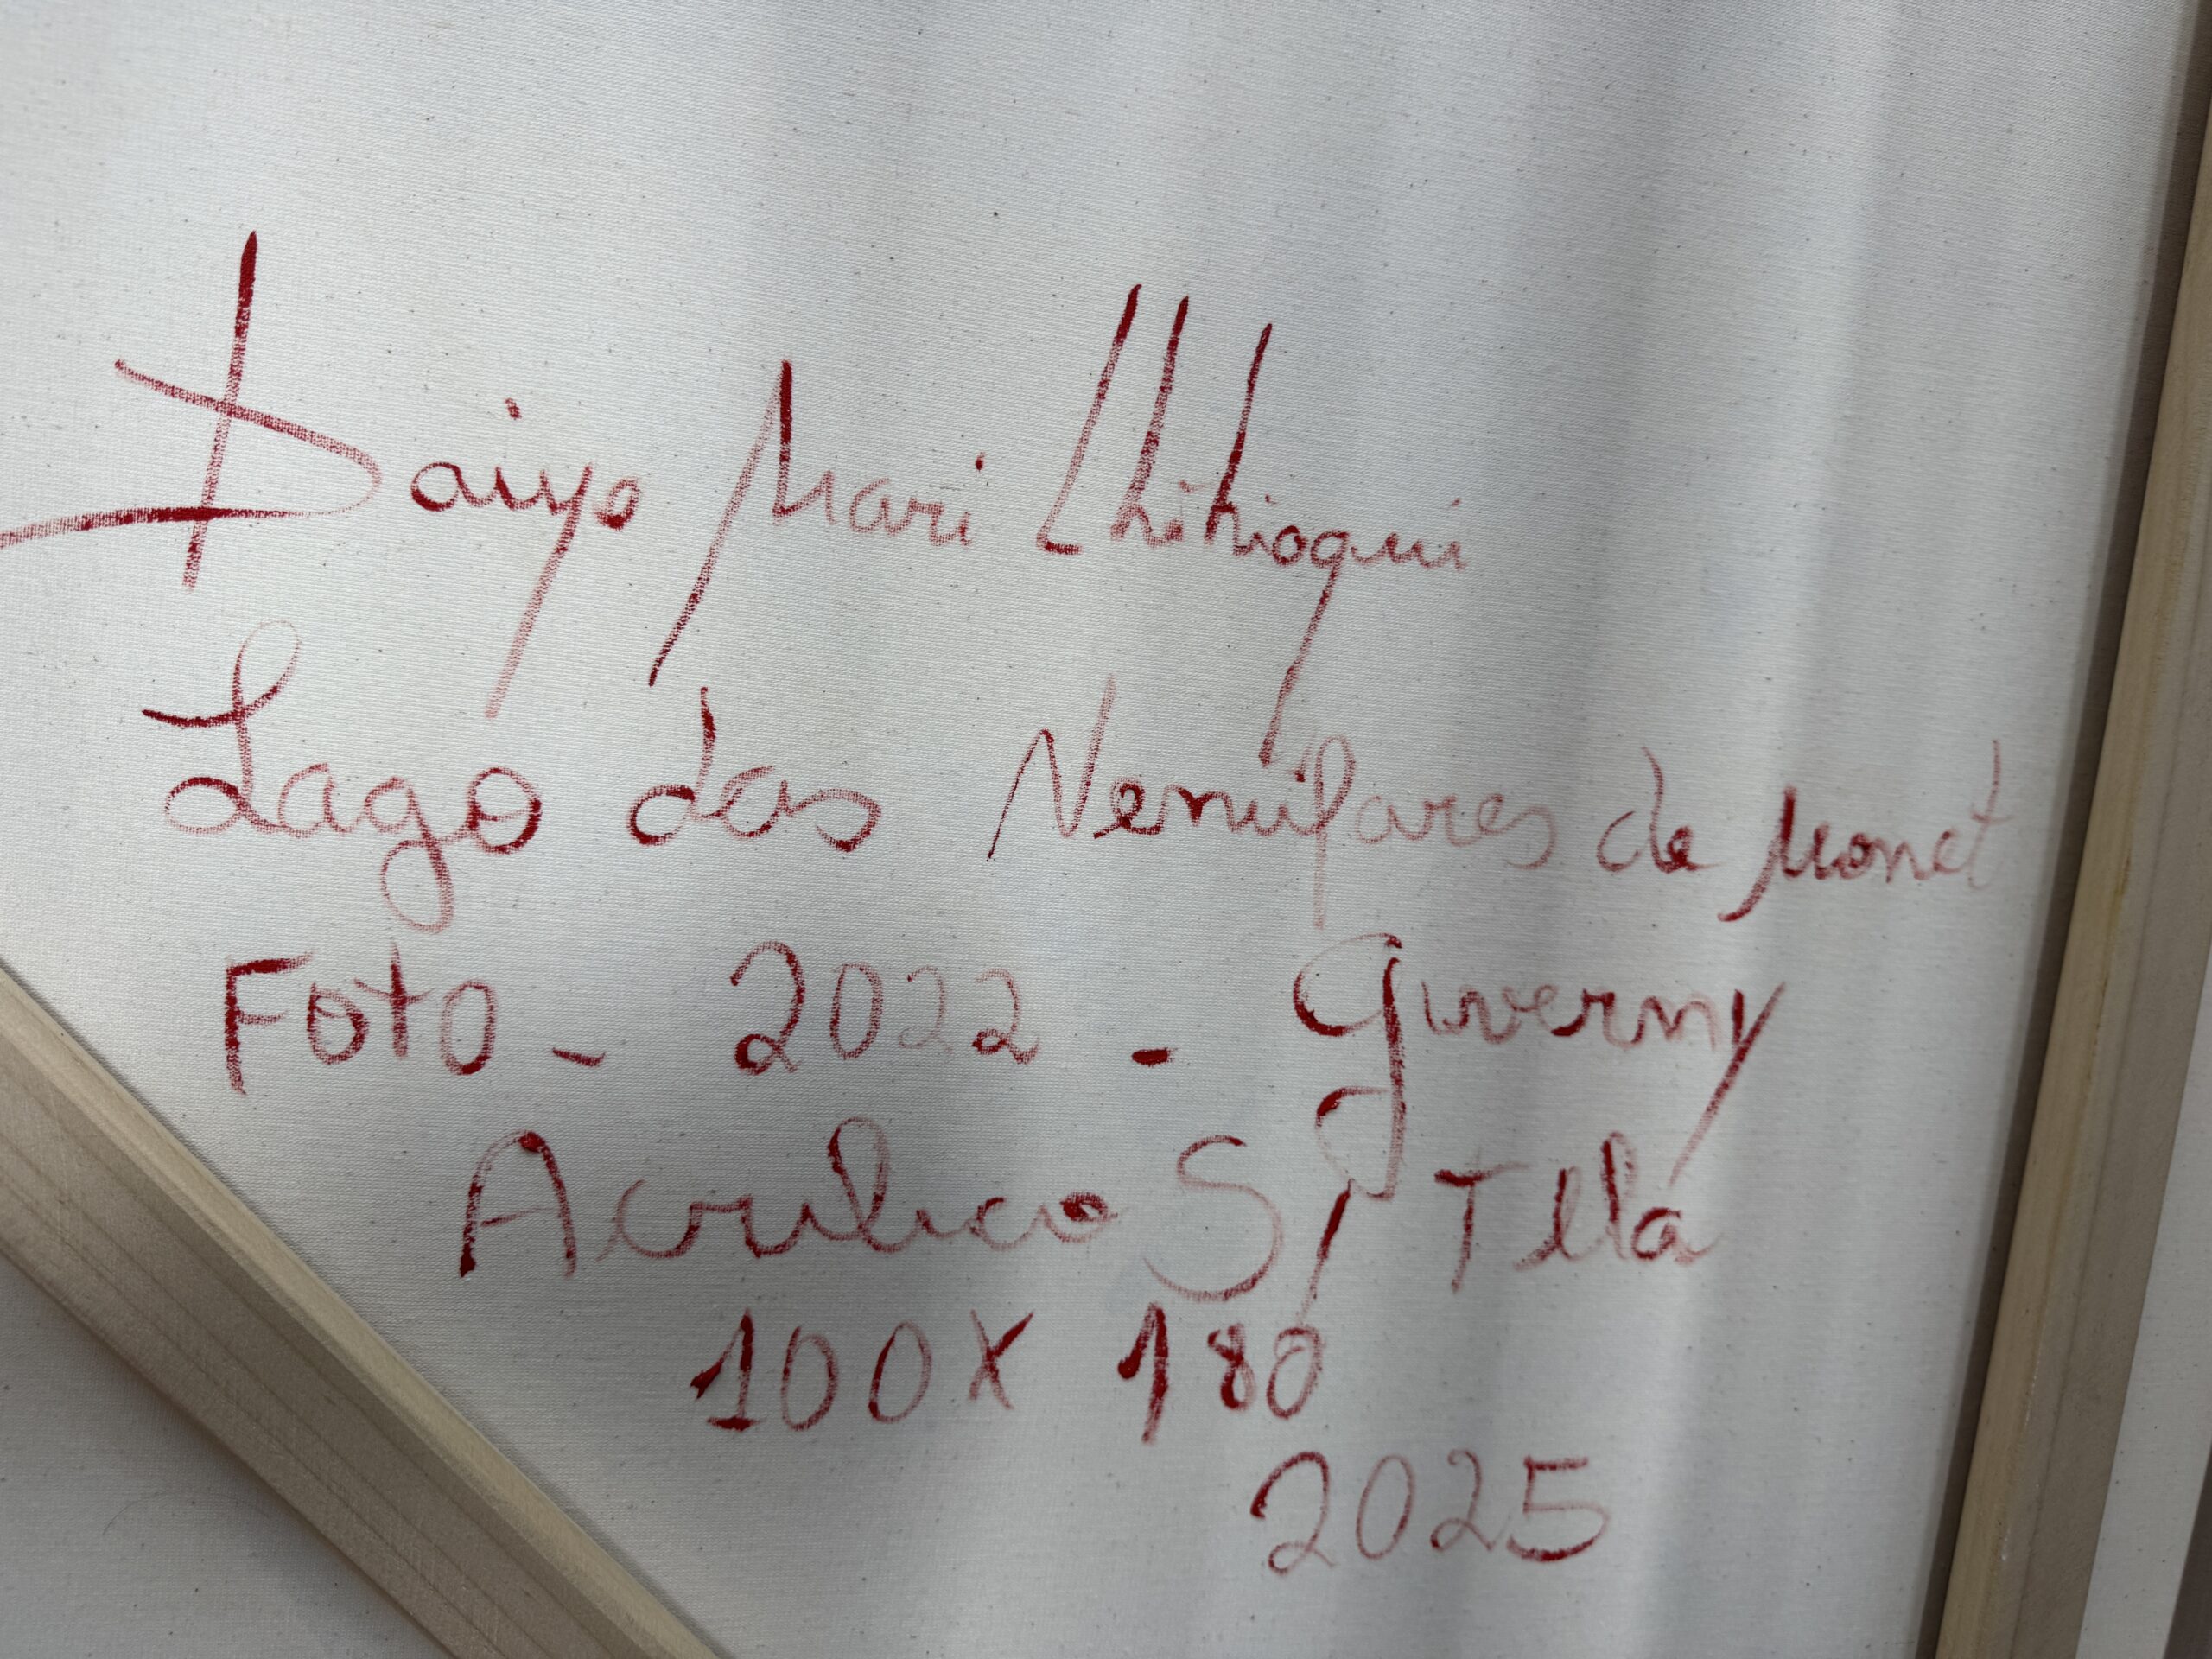 Daiyo Mari Chihioqui
Lago das Nenúfares de Monet
Foto - 2022 - Giverny
Acrilico S/ Tela
100 X 180
2025